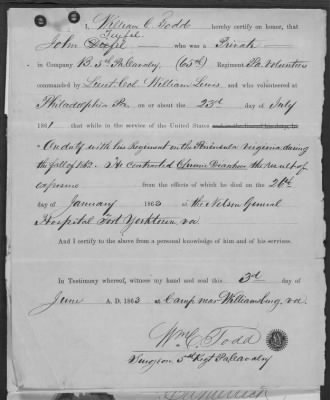 I, William C. Todd hereby certify on honor, that
Teufel
John Doofel who was a Private
in Company B. 5th Pa Cavalry (65th) Regiment Pa. Volunteers
commanded by Lieut. Col. William Lewis, and who volunteered at
Philadelphia Pa. on or about the 23d day of July
1861 that while in the service of the United States
On duty with his Regiment on the Peninsula Virginia during
the fall of 1862. He contracted Chronic Diarrhoea the result of
exposure from the effects of which he died on the 20th
day of January 1863 at the Nelson General
Hospital Fort Yorktown Va
And I certify to the above from a personal knowledge of him and of his services.
In Testimony whereof, witness my hand and seal this 3d day of
June A. D. 1863 at Camp near Williamsburg, Va.
Wm. C. Todd
Surgeon 5th Regt Pa Cavalry